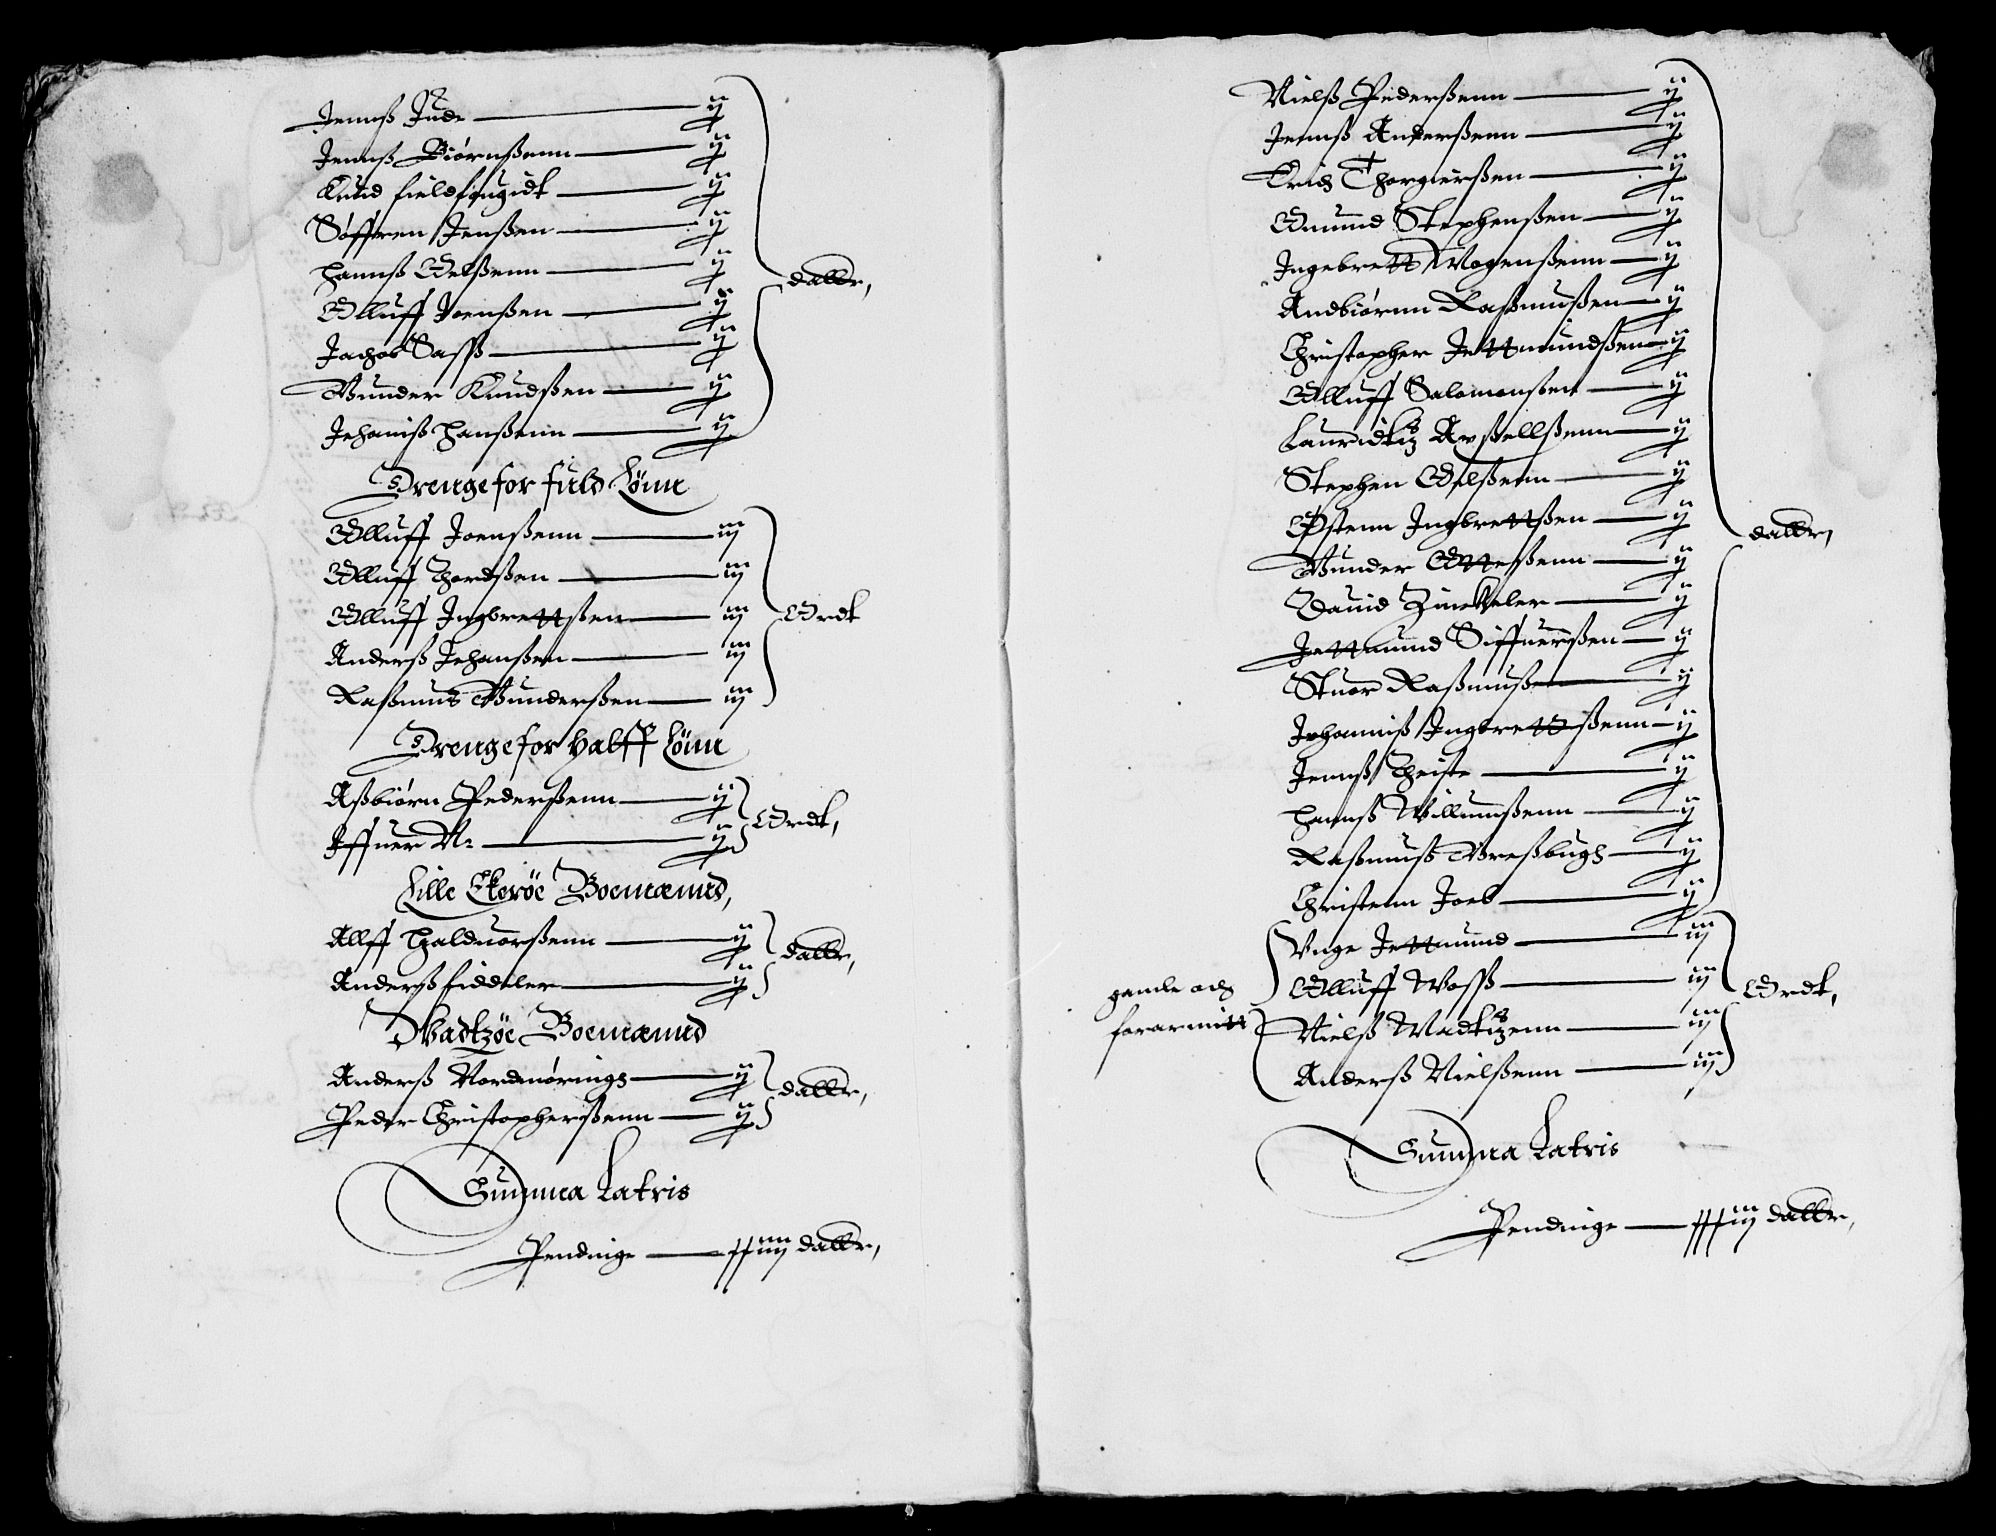 Jennß Jude — ij
Jennß Biørnßenn — ij
Knud — ij
Søffren Jenßen — ij
Hannß Oelßenn — ij
Olluff Joenßen — ij
Jachob Saßß — ij
Gunder Knudßen — ij
Johanniß Hanßenn — ij
daller,
Drenge for fuld Lønn
Olluff Joenßenn — iij
Olluff Thordßen — iij
Olluff Ingbrettßen — iij
Anderß Johanßen — iij
Raßmus Gunderßen — iij
Ordt
Drenge for halff Lønn
Aßbiørn Pederßenn — ij
Iffuer N: — ij
Ordt,
Lille Ekerøe Boemænnd,
Allff Halduorßenn — ij
Anderß fiddeler — ij
daller,
Vadtzøe Boemænnd
Anderß Nordmørings — ij
Peder Christopherßenn — ij
daller,
Summa Latris
Pendinge — xxiiij daller,
Nielß Pederßenn — ij
Jennß Anderßenn — ij
Erich Thorgierßen — ij
Omund Stephenßen — ij
Ingebrett Mogenßenn — ij
Andbiørnn Raßmußen — ij
Christopher Jettmundßen — ij
Olluff Salomonßen — ij
Lauridtz Axßellßenn — ij
Stephen Oelßenn — ij
Østenn Ingbrettßen — ij
Gunder Otteßenn — ij
Dauid Zinckeler — ij
Jettmund Siffuerßen — ij
Stuor Raßmuß — ij
Johanniß Ingbrettßenn — ij
Jennß Theiste — ij
Hannß Willumßenn — ij
Raßmuß Breßbugh — ij
Christenn Joeb — ij
daller,
gamle och
forarmitt
Unge Jettmund — iij
Olluff Moßß — iij
Nielß Madtzenn — iij
Anderß Nielßenn — iij
Ordt,
Summa Latris
Pendinge — xxxxiij daller,